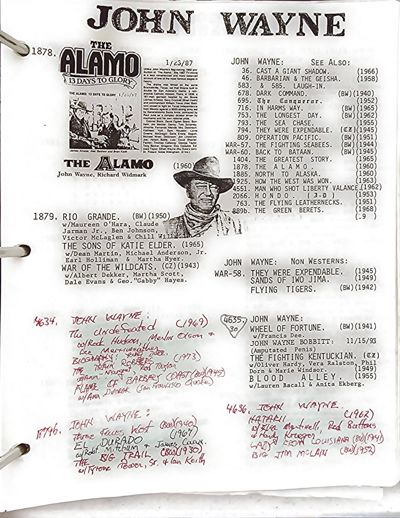 JOHN WAYNE
1878.
THE
ALAMO
13 DAYS TO GLORY
1/23/87
THE ALAMO (1960
John Wayne, Richard Widmark
1879. RIO GRANDE. (BW)(1950)
w/Maureen O'Hara, Claude
Jarman Jr., Ben Johnson,
Victor McLaglen & Chill
THE SONS OF KATIE ELDER. (1965)
w/Dean Martin, Michael Anderson, Jr.
Earl Holliman & Martha Hyer.
WAR OF THE WILDCATS. (CZ)(1943)
w/Albert Dekker, Martha Scott,
Dale Evans & Geo."Gabby" Hayes.
JOHN WAYNE: SEE ALSO:
36. CAST A GIANT SHADOW. (1966)
46. BARBARIAN & THE GEISHA. (1958)
583. & 585. LAUGH-IN.
678. DARK COMMAND. (BW)(1940)
695. The Conqueror. (1952)
716. IN HARMS WAY. (BW)(1965)
753. THE LONGEST DAY. (BW)(1962)
793. THE SEA CHASE. (1955)
794. THEY WERE EXPENDABLE. (CZ)(1945)
809. OPERATION PACIFIC. (BW)(1951)
WAR-57. THE FIGHTING SEABEES. (BW)(1944)
WAR-60. BACK TO BATAAN. (BW)(1945)
1404. THE GREATEST STORY. (1965)
1878. THE ALAMO. (1960)
1885. NORTH TO ALASKA. (1960)
1925. HOW THE WEST WAS WON. (1963)
4551. MAN WHO SHOT LIBERTY VALANCE.(1962)
2066. HONDO (3-D) (1953)
763. THE FLYING LEATHERNECKS. (1951)
889b. THE GREEN BERETS. (1968)
(.9 )
JOHN WAYNE: NON WESTERNS:
WAR-58. THEY WERE EXPENDABLE. (1945)
SANDS OF IWO JIMA. (1949)
FLYING TIGERS. (BW)(1942)
4634. JOHN WAYNE:
The Undefeated (1969)
w/Rock Hudson, Merlin Olsen &
Lee Meriwether
(1973)
FLAME OF BARBARY COAST (BW)(1945)
w/Ann Dvorak (San Francisco Quake)
4635. JOHN WAYNE:
30
WHEEL OF FORTUNE. (BW)(1941)
w/Francis Dee.
JOHN WAYNE BOBBITT: 11/15/93
(Amputated Penis)
THE FIGHTING KENTUCKIAN. (CZ)
w/Oliver Hardy, Vera Ralston, Phil
Dorn & Marie Windsor. (1949)
BLOOD ALLEY. (1955)
w/Lauren Bacall & Anita Ekberg.
JOHN WAYNE:
Three Faces West (BW)(1940)
EL DORADO (1967)
w/Robt Mitchum & James Caan.
THE BIG TRAIL (BW)(1930)
w/Tyrone Power, Sr. & Ian Keith
4636. JOHN WAYNE
HATARI (1962)
w/Elsa Martinelli, Red Buttons
& Hardy Kruger
LADY FROM LOUISIANA (BW)(1941)
BIG JIM McLAIN (BW)(1952)